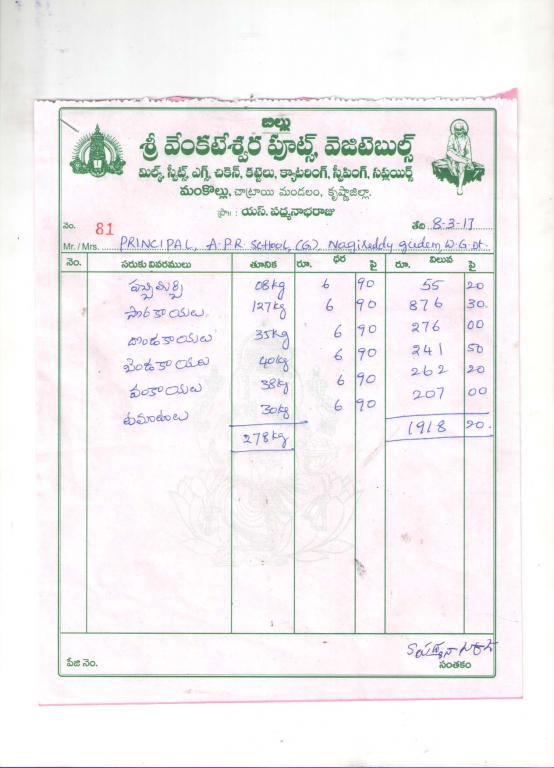 బిల్లు
శ్రీ వేంకటేశ్వర ఫూట్స్, వెజిటెబుల్స్
మిల్క్, స్వీట్స్, ఎగ్స్, చికెన్, కట్టెలు, క్యాటరింగ్, స్వీపింగ్, సప్లయిర్స్
మంకొల్లు, చాట్రాయి మండలం, కృష్ణాజిల్లా.
ప్రొ॥ : యస్. పద్మనాభరాజు
నెం. 81 తేది 8-3-17
Mr. / Mrs. PRINCIPAL, A.P.R. School, (G) Nagireddy gudem, W.G.Dt.
నెం. సరుకు వివరములు తూనిక రూ. ధర పై రూ. విలువ పై
పచ్చిమిర్చి 08kg 6 90 55 20
సొరకాయలు 127kg 6 90 876 30.
దొండకాయలు 35kg 6 90 276 00
బెండకాయలు 40kg 6 90 241 50
వంకాయలు 38kg 6 90 262 20
టమాటులు 30kg 6 90 207 00
278kg 1918 20.
పేజి నెం. సంతకం